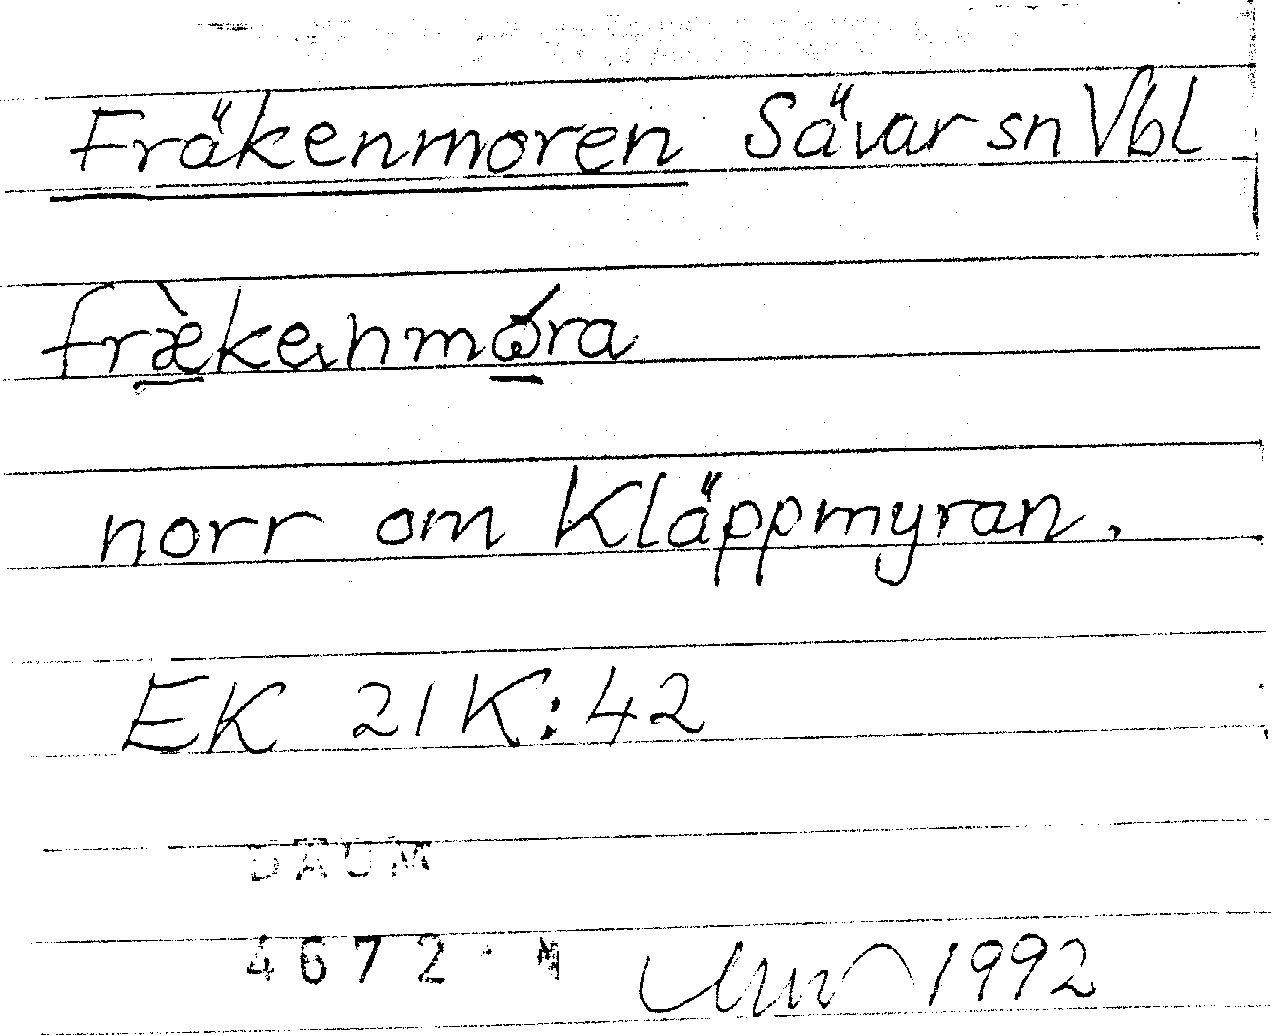 Fräkenmoren Sävar sn Vbl
fræ̀kenmǿra
norr om Kläppmyran.
EK 21K:42
DAUM
4672
1992